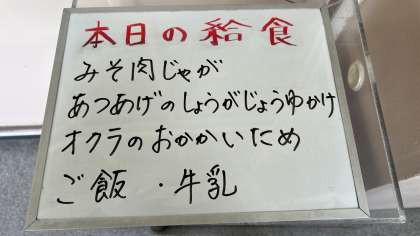 本日の給食
みそ肉じゃが
あつあげのしょうがじょうゆかけ
オクラのおかかいため
ご飯・牛乳